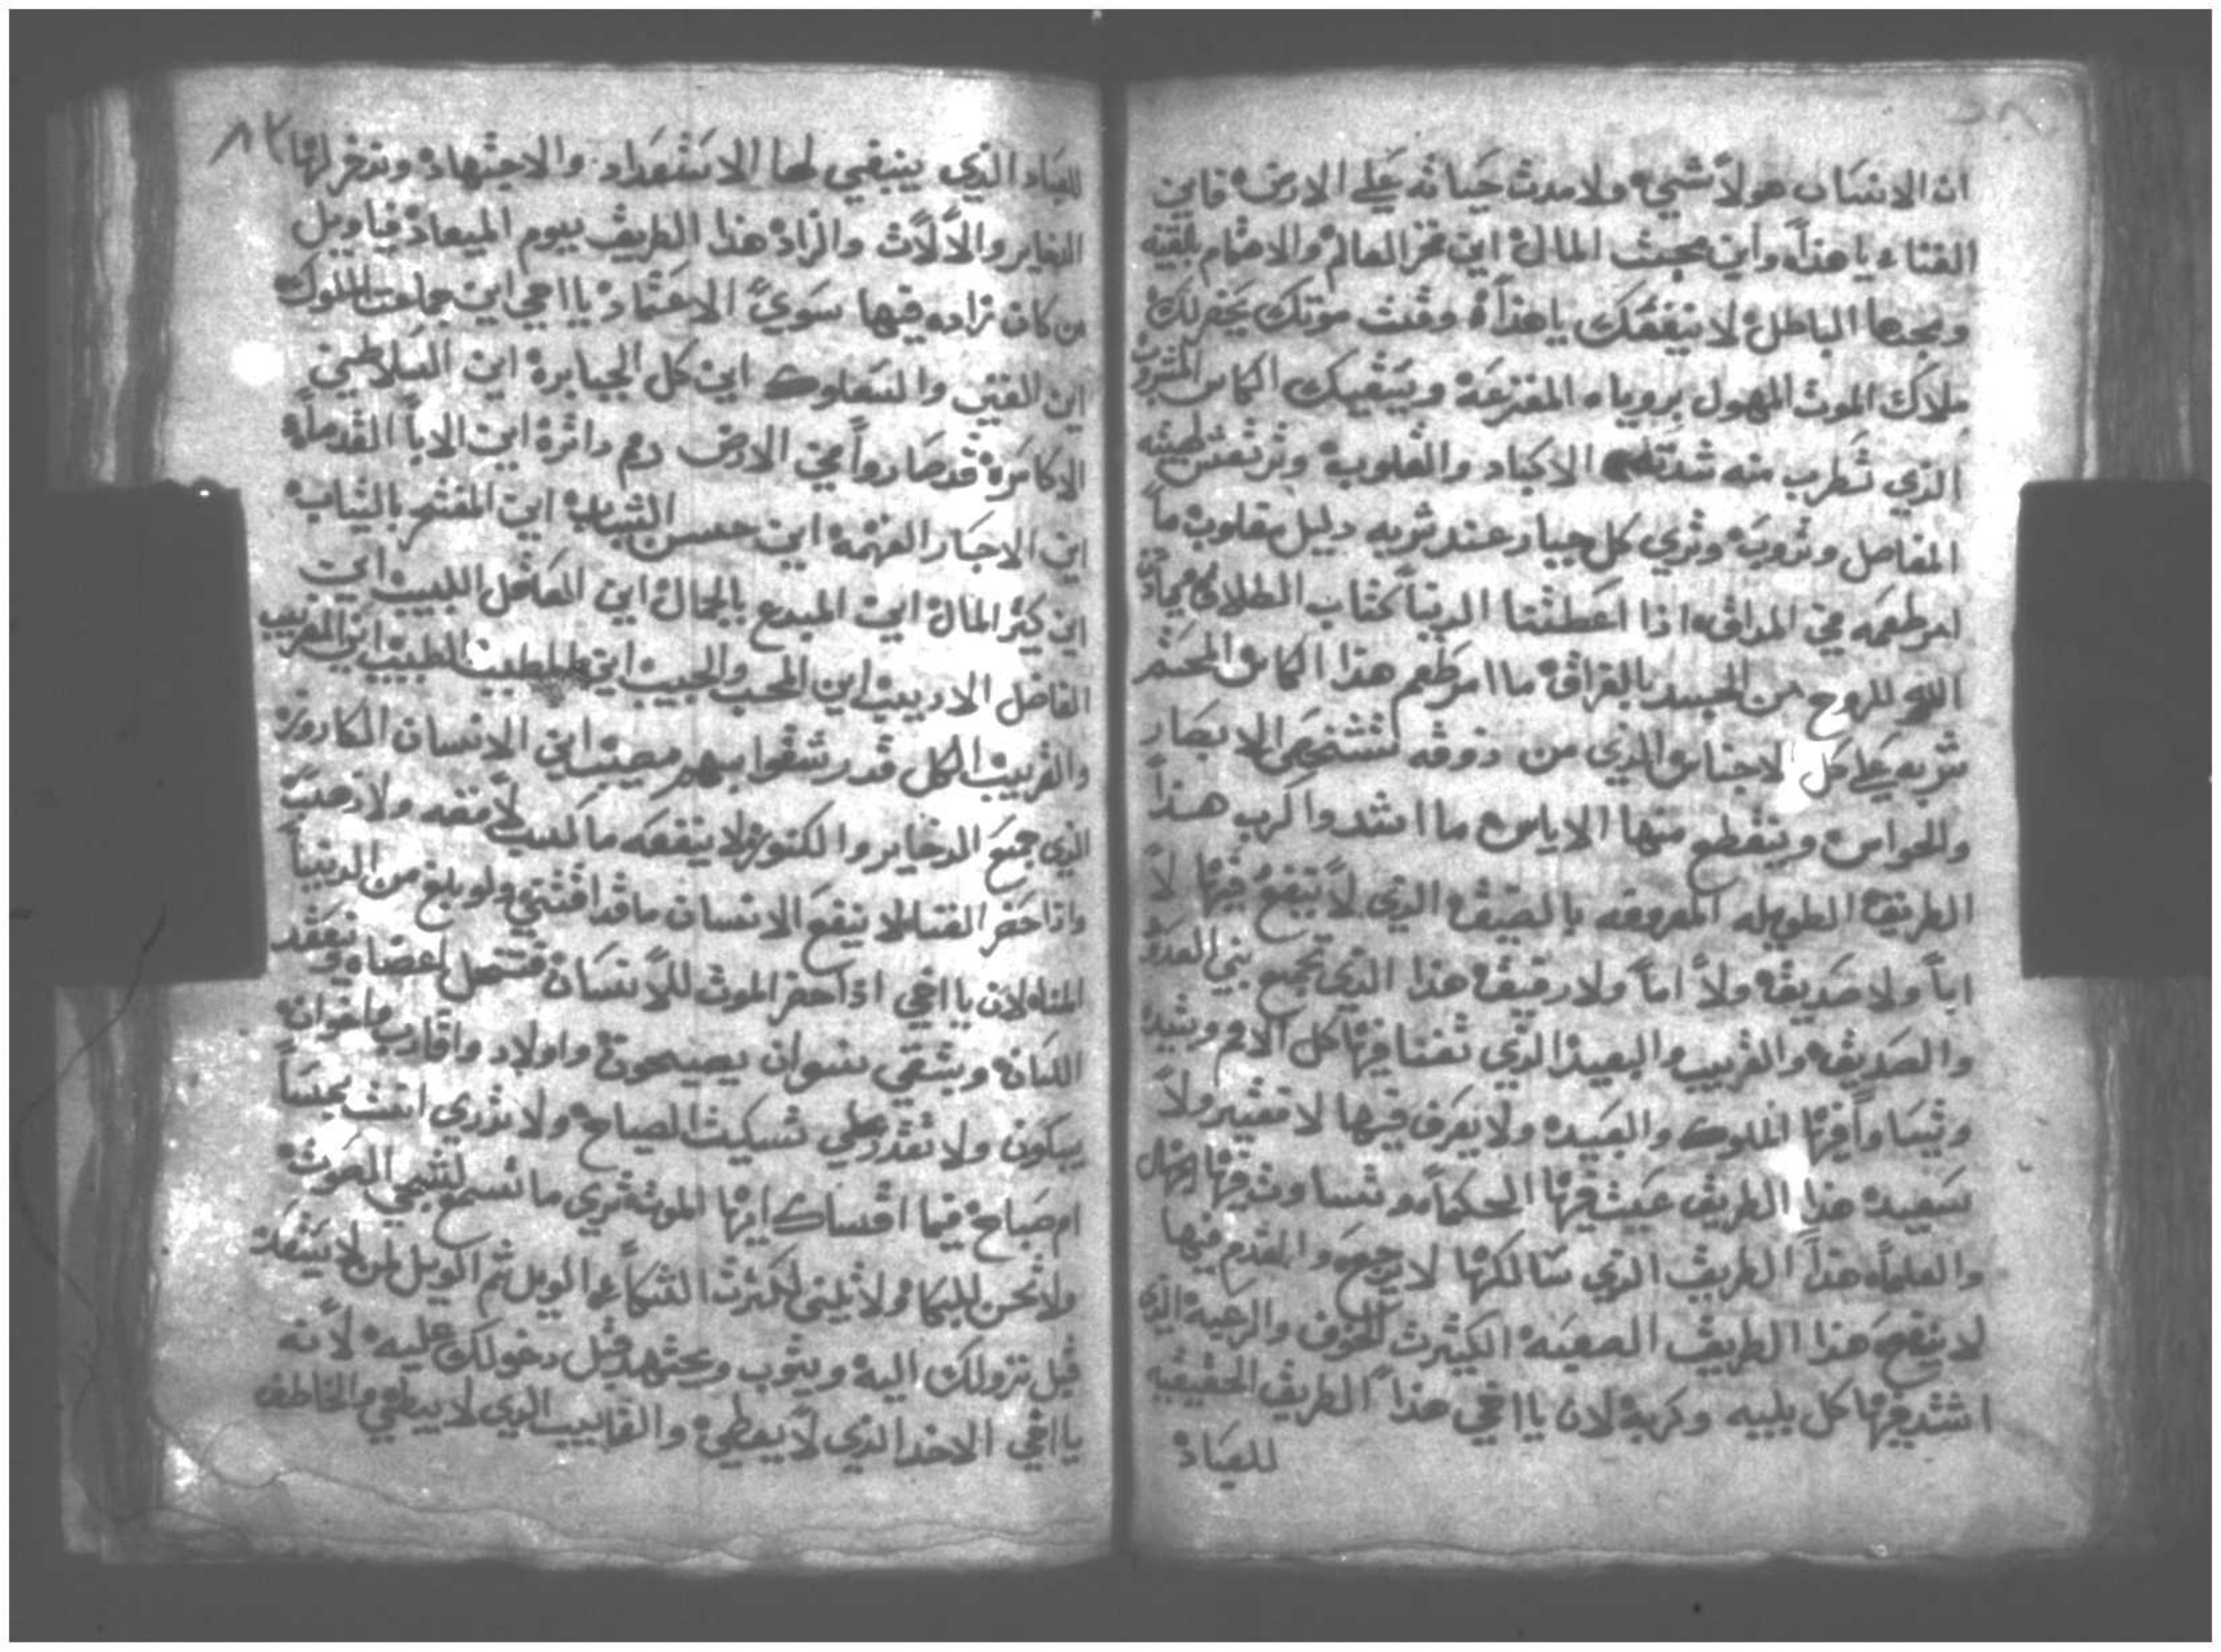 ان الانسان هو لا شيء ولا مدت حياته علي الارض فاين
الفتاء يا هذا واين محبت المال اين فخر العالم والاهتمام بلقيه
ومجدها الباطل لا ينفعك يا هذا وقت موتك يحضر لك
ملاك الموت المهول بروياه المفزعه ويسقيك الكاس المشروب
الذي تطرب منه شدته الاكباد والقلوب وترتعش
المفاصل وتروب وتري كل جبار عند شربه دليل مغلوب ما
امر طعمه في المداق اذا اعطتنا الدنيا كتاب الطلاق
الروح من الجسد بالفراق ما امر طعم هذا الكاس المحتم
شربه علي كل الاجناس الذي من ذوقه تشخص الابصار
والحواس وينقطع منها الاياس ما اشد واكرب هذا
الطريق الطويله المعروفه بالضيق الذي لا ينفع فيها لا
اباً ولا صديق ولا اماً ولا رفيق هذا الذي تجمع بني العدو
والصديق والقريب والبعيد الذي تفنا فيها كل الامم
وتيساوا فيها الملوك والعبيد ولا يعرف فيها لا فقير ولا
سعيد هذا الطريق عبيت فيها الحكماء وتنسا وتدقها
والعلماء هذا الطريق الذي سالكها لا يرجع والمقدم فيها
لا ينجع هذا الطريق الصعبه الكثيرت الخوف والرعبه الذي
اشتد فيها كل بليه وكربه لان يا اخي هذا الطريق الحقيقيه
للعباد
للعباد الذي ينبغي لها الاستعداد والاجتهاد وندخر لها
الدخاير والالات والزاد هذا الطريق بيوم الميعاد فيا ويل
من كان زاده فيها سوي الاعتماد يا اخي اين جماعت الملوك
اين الغني والسعلوك اين كل الجبابرة اين السلاطين
الاكاسرة قد صاروا في الارض رمم داثرة اين الابا القدما
اين الاحبار الفهمه اين حسن الشباب اين المفتخر بالثياب
اين كثر المال اين المبدع بالجمال اين العاقل اللبيب اين
الفاضل الاديب اين المحب والحبيب اين الطبيب اين الغريب
والقريب الكل قد رشقوا بسهم مصيب اين الانسان المكاروز
الذي جمع الدخاير والكنوز ولا ينفعه ما كسب لا فضه ولا ذهب
واذا حضر الفنا لا ينفع الانسان ما قد اقتني ولو بلغ من الدنيا
المنا لان يا اخي اذا حضر الموت للانسان فتنحل اعضاه وينعقد
اللسان ويبقي نسوان يصيحون واولاد واقارب واخوان
يبكون ولا تقدر تسكيت الصياح ولا تدري انت بمسا
ام صباح فيما اقساك ايها الموت تري ما تسمع
ولا تحن للبكا ولا تلين لكثرت الشكا الويل ثم الويل لمن لا يستعد
قبل نزولك اليه ويتوب ويجتهد قبل دخولك عليه لانه
يا اخي الاخد الذي لا يعطي والقاييب الذي لا يبطي والخاطف